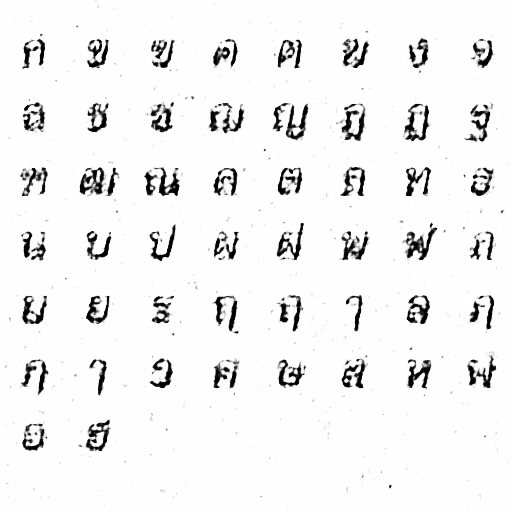 ก ข ฃ ค ฅ ฆ ง จ
ฉ ช ซ ฌ ญ ฎ ฏ ฐ
ฑ ฒ ณ ด ต ถ ท ธ
น บ ป ผ ฝ พ ฟ ภ
ม ย ร ฤ ฤ ๅ ล ภ
ฦ ๅ ว ศ ษ ส ห ฬ
อ ฮ